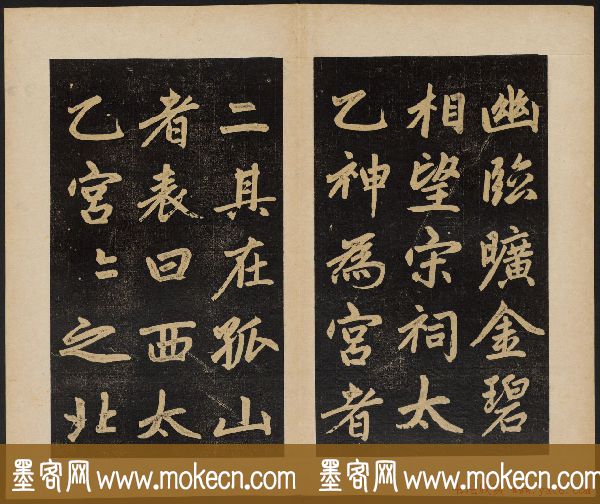 幽臨曠金碧
相望宋祠太
乙神為宮者
二其在孤山
者表曰西太
乙宮〻之北
墨客网 www.mokecn.com
墨客网 www.mokecn.com